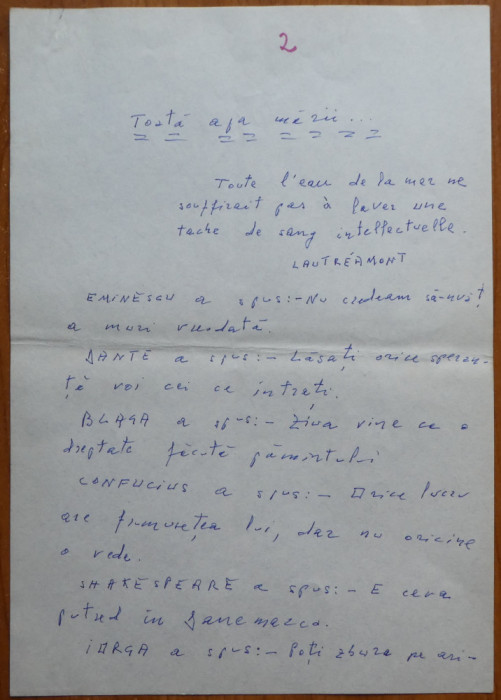 2
Toată apa mării...
Toute l'eau de la mer ne
souffirait pas à laver une
tache de sang intellectuelle.
LAUTRÉAMONT
EMINESCU a spus:- Nu credeam să-nvăț
a muri vreodată.
DANTE a spus:- Lăsați orice speran-
ță voi cei ce intrați.
BLAGA a spus:- Ziua vine ca o
dreptate făcută pămîntului
CONFUCIUS a spus:- Orice lucru
are frumusețea lui, dar nu oricine
o vede.
SHAKESPEARE a spus:- E ceva
putred în Danemarca.
IORGA a spus:- Poți zbura pe ari-